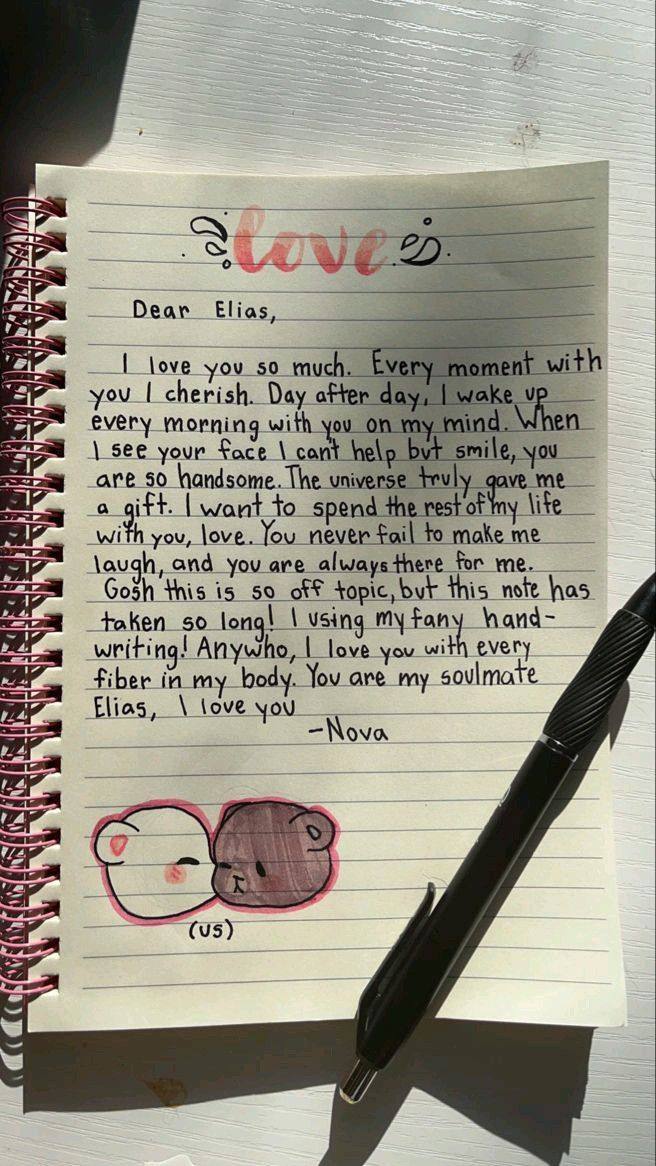 love
Dear Elias,
I love you so much. Every moment with
you I cherish. Day after day, I wake up
every morning with you on my mind. When
I see your face I can't help but smile, you
are so handsome. The universe truly gave me
a gift. I want to spend the rest of my life
with you, love. You never fail to make me
laugh, and you are always there for me.
Gosh this is so off topic, but this note has
taken so long! I using my fany hand-
writing! Anywho, I love you with every
fiber in my body. You are my soulmate
Elias, I love you
-Nova
(us)